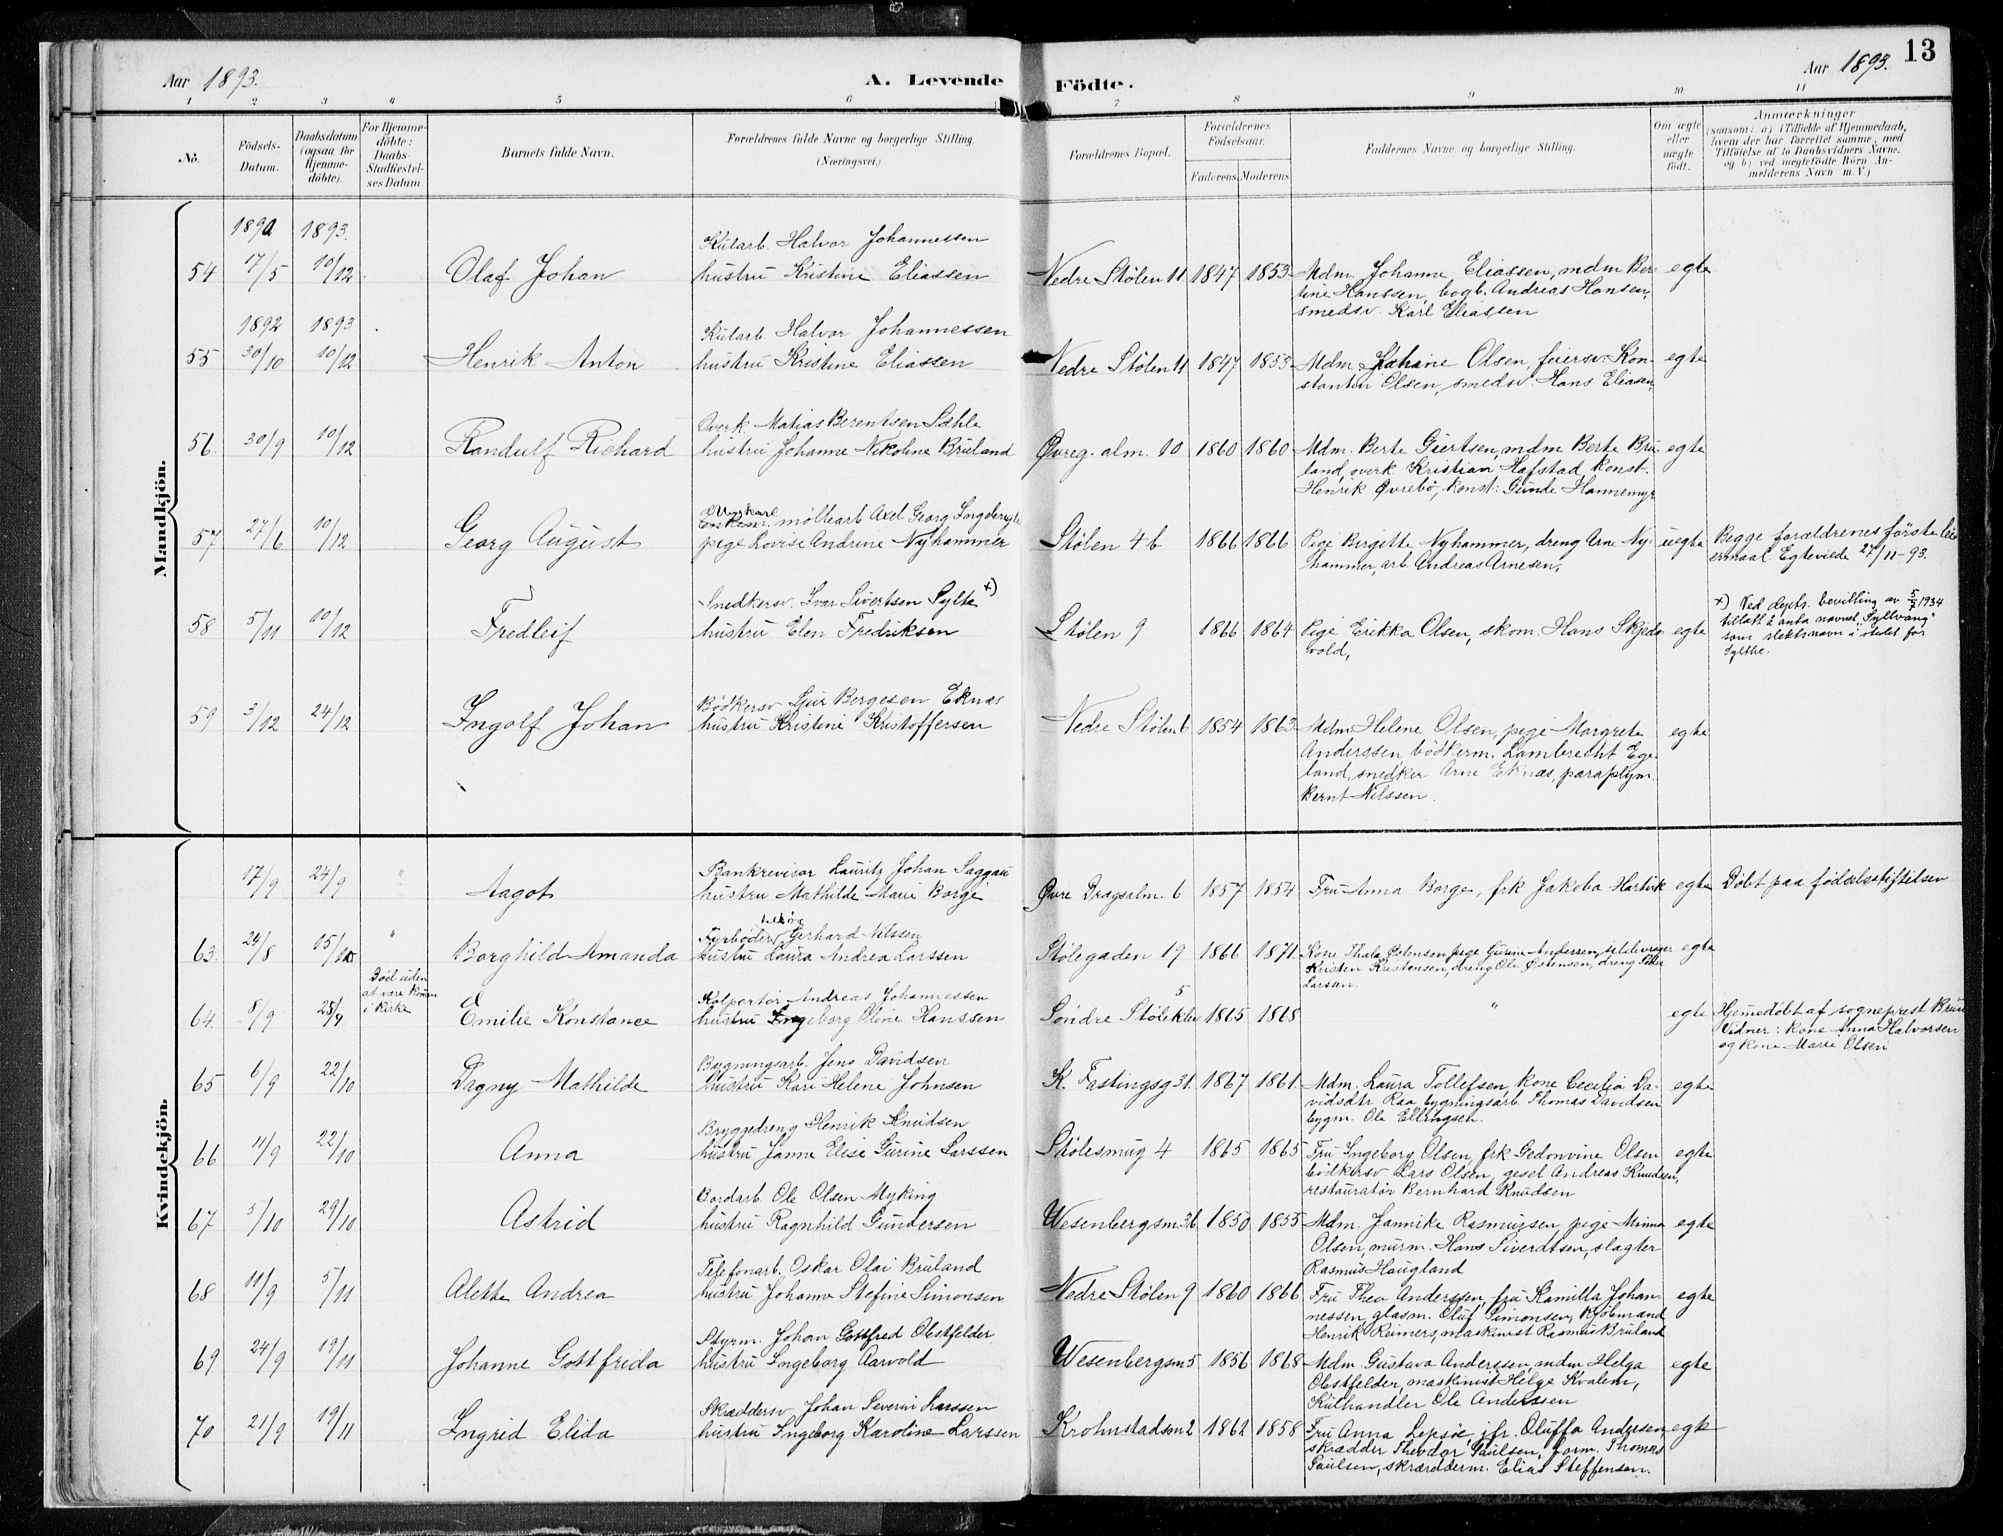 Aar 1893.
A. Levende Födte.
Aar 1893. 13
1 2 3 4 5 6 7 8 9 10 11
No.
Födsels-Datum.
Daabsdatum (ogsaa for Hjemme-döbte).
For Hjemme-döbte: Daabs-Stadfæstel-ses Datum.
Barnets fulde Navn.
Forældrenes fulde Navne og borgerlige Stilling. (Næringsvei.)
Forældrenes Bopæl.
Forældrenes Födselsaar.
Faderens. Moderens.
Faddernes Navne og borgerlige Stilling.
Om ægte eller uægte födt.
Anmærkninger
(saasom: a) i Tilfælde af Hjemmedaab, hvem der har forrettet samme, med Tilföielse af to Daabsvidners Navne, og b) ved uægtefödte Börn Anmelderens Navn m. V.)
Mandkjön.
1890 1893.
Kularb. Halvor Johannessen
54 17/5 10/12 Olaf Johan hustru Kristine Eliassen Nedre Stølen 11 1847 1853 Mdm. Johanne Eliassen, mdm Ber- egte
tine Hanssen, bogb. Andreas Hansen,
smedsv. Karl Eliassen
1892 1893
Kularb Halvor Johannessen
55 30/10 10/12 Henrik Anton hustru Kristine Eliassen Nedre Stølen 11 1847 1853 Mdm Johanne Olsen, feiersv. Kon- egte
stantin Olsen, smedsv. Hans Eliasen,
Overk. Matias Berentsen Sæhle
56. 30/9 10/12 Randulf Richard hustru Johanne Nikoline Bruland Øvreg. alm. 10 1860 1860 Mdm. Berte Giertsen, mdm Berte Bru- egte
land, overk Kristian Hafstad konst.
Henrik Øvrebø, konst: Gunde Hannemyr
Ungkarl møllearb Axel Georg
57 27/6 10/12 Georg August pige Lovise Andrine Nyhammer Stølen 4b 1866 1866 Pige Birgitte Nyhammer, dreng Arne Ny- uegte Begge forældrenes første lei-
hammer, arb. Andreas Arnesen, ermaal Egteviede 27/11-93.
Snedkersv. Ivar Sivertsen Sylte x)
58 5/11 10/12 Fredleif hustru Elen Fredriksen Stølen 9 1866 1864 Pige Erikka Olsen, skom. Hans Skjeds- egte
vold,
x) Ved depts. bevilling av 5/7 1934
tillatt å anta navnet "Syltvang"
som slektsnavn i stedet for
Sylthe.
Bødkersv Sjur Bergesen Eknæs
59 3/12 24/12 Ingolf Johan hustru Kristine Kristoffersen Nedre Stølen 6 1854 1863 Mdm Helene Olsen, pige Margrete egte
Anderssen, bödkerm. Lambrecht Ege-
land, snedker Arne Eknæs, paraplym.
Bernt Nilssen.
Kvindekjön.
Bankrevisor Lauritz Johan Saggau
17/9 24/9 " Aagot hustru Mathilde Marie Borge Øvre Dragsalm. 6 1857 1854 Fru Anna Borge, frk Jakoba Hartvik egte Døbt paa fødselsstiftelsen
Fyrbøder Gerhard Nilssen
63. 24/8 15/10 " Borghild Amanda hustru Laura Andrea Larssen Stølegaden 19 1866 1871 Kone Thala Østensen pige Gurine Anderssen, egte
Kristen Kristensen, dreng Ole Østensen, dreng Peter
Larssen.
Død uden at være kommen i kirke
Kolportør Andreas Johannessen
64. 8/9 25/9 Emilie Konstance hustru Ingeborg Oline Hanssen Søndre Støleklev 5 1865 1868 " egte Hjemedøbt af sogneprest Bruun
Vidner: kone Anna Halvorsen
og kone Marie Olsen
Bygningsarb. Jens Davidsen
65 6/9 22/10 Dagny Mathilde hustru Kari Helene Johnsen K. Fastingsg 31. 1867 1861. Mdm. Laura Tollefsen, kone Cecilia Da- egte
vidsdtr Raa, bygningsarb. Thomas Davidsen
bygm. Ole Ellingsen.
Bryggedreng Henrik Knudsen
66 11/9 22/10 Anna hustru Janne Elise Gurine Larssen Stølesmug 4 1865 1865 Fru Ingeborg Olsen, frk Gedonvine Olsen egte
bødkersv Lars Olsen, gesel Andreas Knudsen,
restauratør Bernhard Knudsen
Bordarb Ole Olsen Myking
67 5/10 29/10 Astrid hustru Ragnhild Gundersen Wesenbergsm. 36 1850 1855 Mdm. Jannike Rasmussen, pige Minna egte
Olsen, murm. Hans Siverdtsen, slagter
Rasmus Haugland
Telefonarb. Oskar Olai Bruland
68 11/9 5/11 Alette Andrea hustru Johanne Stefine Simonsen Nedre Stølen 9 1860 1866 Fru Thea Anderssen, fru Kamilla Johan- egte
nessen, glasm. Oluf Simonsen, kjøbmand
Henrik Reimers, maskinist Rasmus Bruland
Styrm. Johan Gottfred Obstfelder
69 24/9 19/11 Johanne Gottfrida hustru Ingeborg Aarvold Wesenbergsm 5 1856 1868 Mdm. Gustava Anderssen, mdm Helga egte
Obstfelder, maskinist Helge Kvalem,
Kulhandler Ole Anderssen
Skræddersv Johan Severin Larssen
70 21/9 19/11 Ingrid Elida hustru Ingeborg Karoline Larssen Krohnstadsm 2 1862 1858 Fru Anna Lepsøe, jfr. Oluffa Andersen egte
skrædder Theodor Paulsen, form. Thomas
Paulsen, skrædderm. Elias Steffensen.